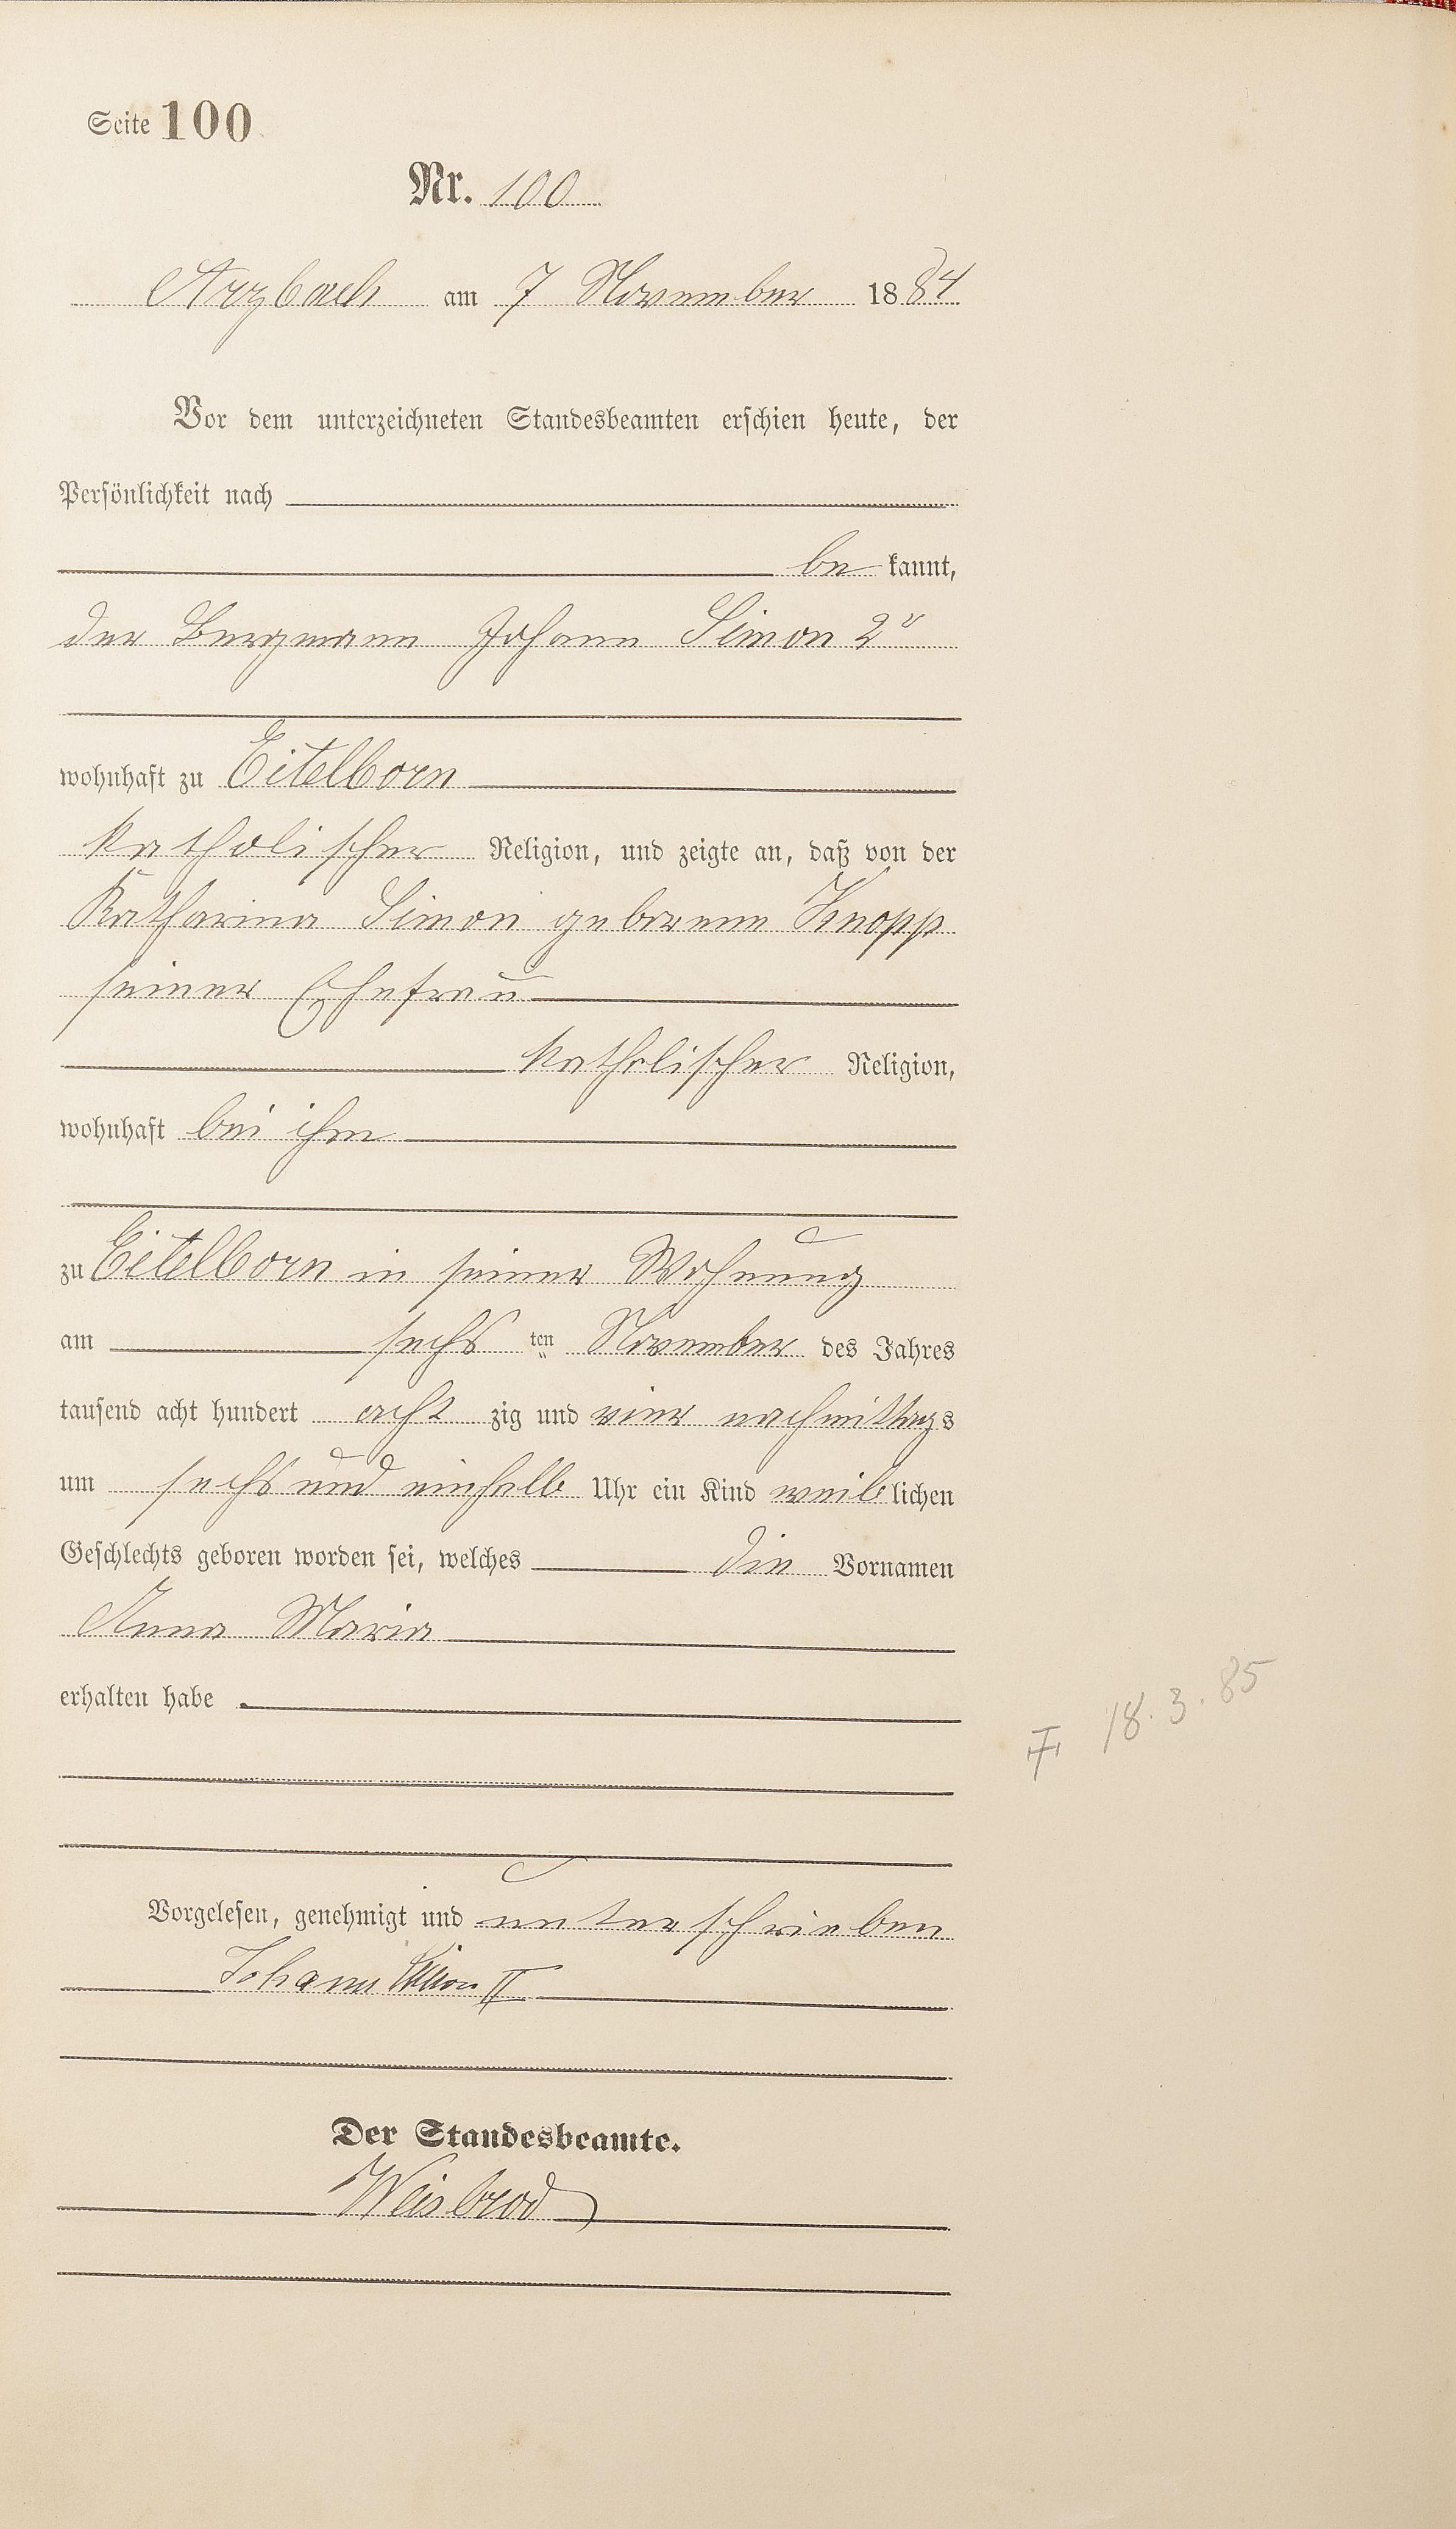 Seite 100
Nr. 100
Arzbach am 7 November 1884
Vor dem unterzeichneten Standesbeamten erschien heute, der
Persönlichkeit nach
be kannt,
der Bergmann Johann Simon 2r
wohnhaft zu Eitelborn
katholischer Religion, und zeigte an, daß von der
Katharina Simon geborene Knopp
seiner Ehefrau
katholischer Religion,
wohnhaft bei ihm
zu Eitelborn in seiner Wohnung
am sechs ten November des Jahres
tausend acht hundert acht zig und vier nachmittags
um sechs und einhalb Uhr ein Kind weiblichen
Geschlechts geboren worden sei, welches die Vornamen
Anna Maria
erhalten habe .
18.3.85
Vorgelesen, genehmigt und unterschrieben
Johann Simon II
Der Standesbeamte.
Weisbrod